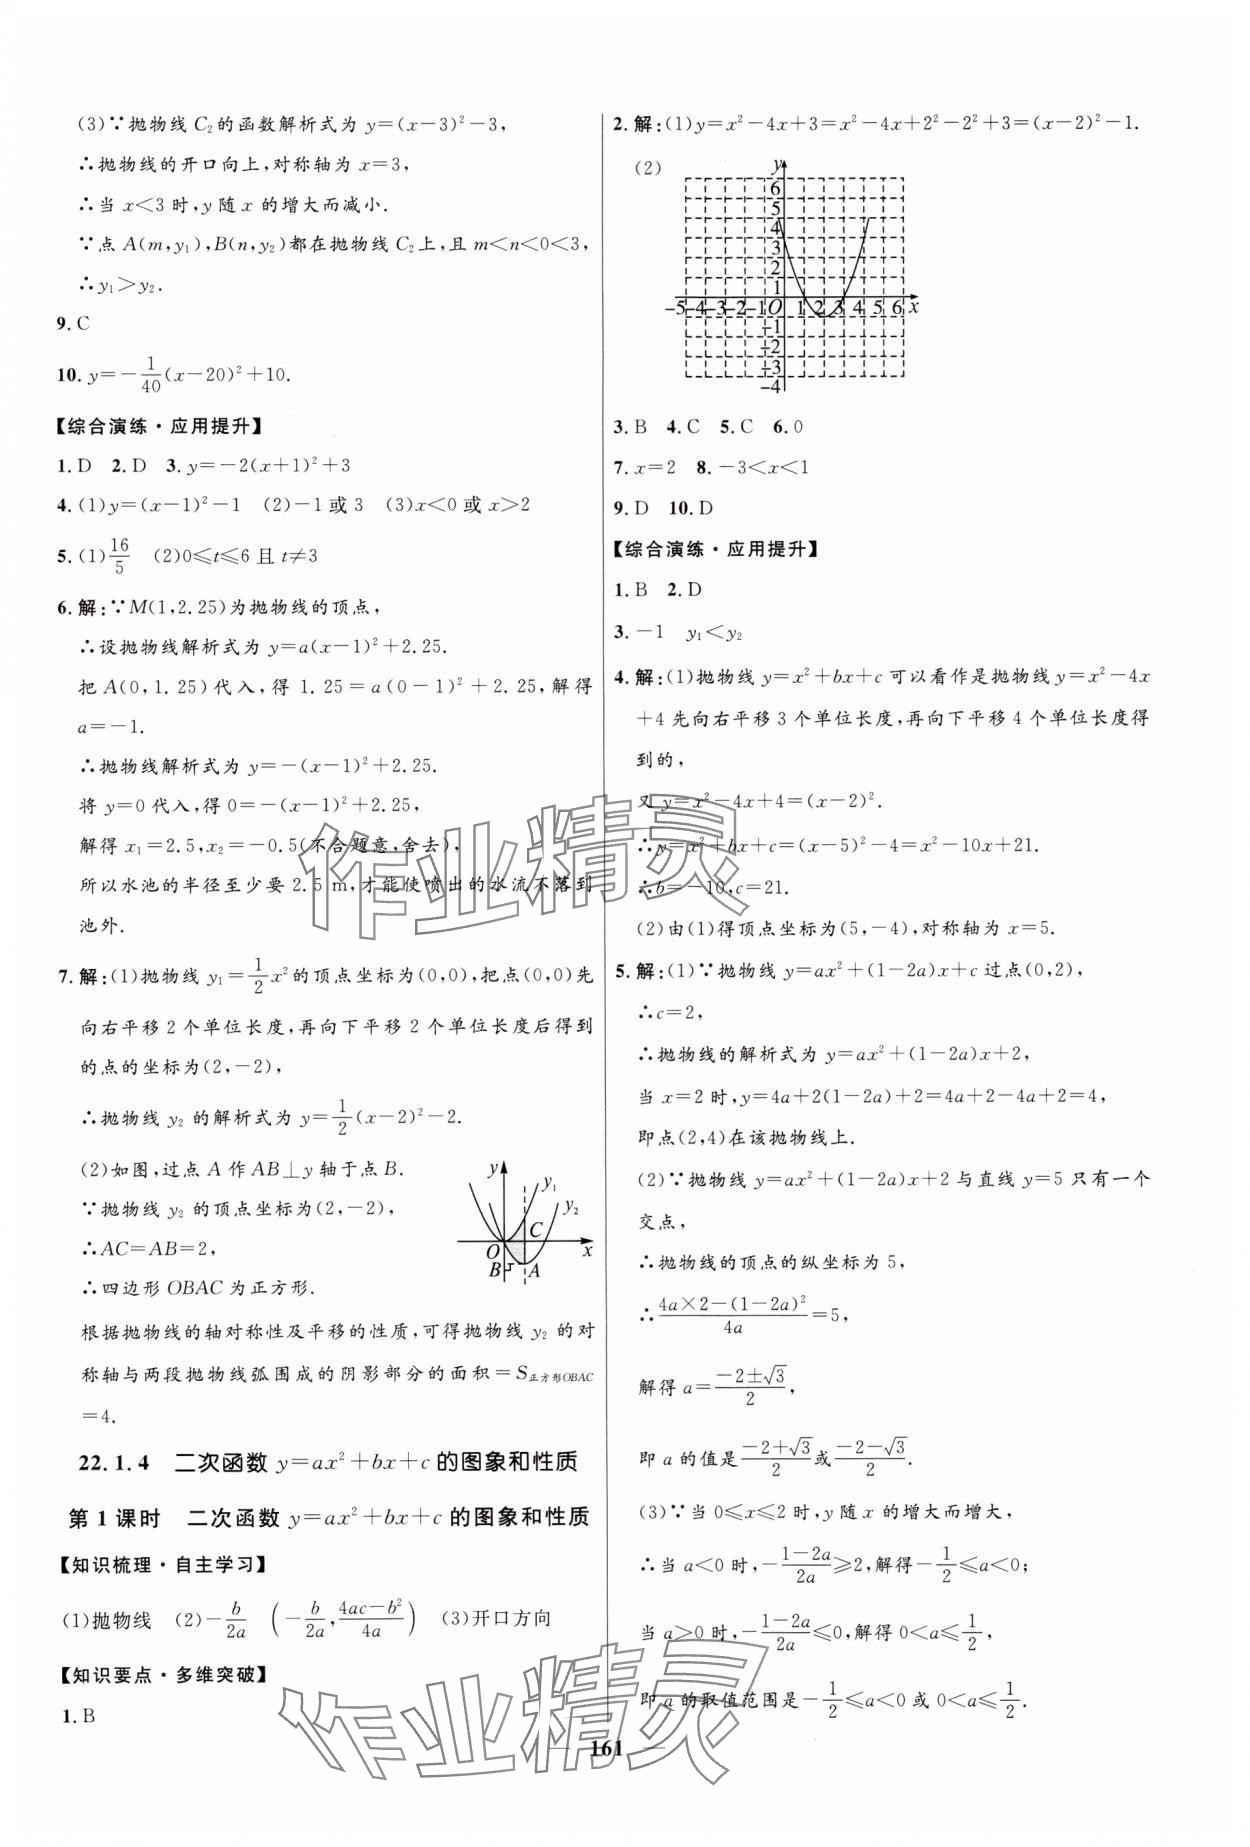 (3)∵抛物线 C₂的函数解析式为 y=(x-3)²-3,
∴抛物线的开口向上,对称轴为 x=3,
∴当 x<3 时,y 随 x 的增大而减小.
∵点 A(m,y₁),B(n,y₂)都在抛物线 C₂上,且 m<n<0<3,
∴y₁>y₂.
9. C
10. y=-1/40(x-20)²+10.
【综合演练·应用提升】
1. D 2. D 3. y=-2(x+1)²+3
4. (1)y=(x-1)²-1 (2)-1 或 3 (3)x<0 或 x>2
5. (1)16/5 (2)0≤t≤6 且 t≠3
6. 解:∵M(1,2.25)为抛物线的顶点,
∴设抛物线解析式为 y=a(x-1)²+2.25.
把 A(0,1.25)代入,得 1.25=a(0-1)²+2.25,解得
a=-1.
∴抛物线解析式为 y=-(x-1)²+2.25.
将 y=0 代入,得 0=-(x-1)²+2.25,
解得 x₁=2.5,x₂=-0.5(不合题意,舍去),
所以水池的半径至少要 2.5 m,才能使喷出的水流不落到
池外.
7. 解:(1)抛物线 y₁=1/2x²的顶点坐标为(0,0),把点(0,0)先
向右平移 2 个单位长度,再向下平移 2 个单位长度后得到
的点的坐标为(2,-2),
∴抛物线 y₂ 的解析式为 y=1/2(x-2)²-2.
(2)如图,过点 A 作 AB⊥y 轴于点 B.
∵抛物线 y₂ 的顶点坐标为(2,-2),
∴AC=AB=2,
∴四边形 OBAC 为正方形.
y y₁ y₂ C O x B A
根据抛物线的轴对称性及平移的性质,可得抛物线 y₂ 的对
称轴与两段抛物线弧围成的阴影部分的面积=S正方形OBAC
=4.
22.1.4 二次函数 y=ax²+bx+c 的图象和性质
第 1 课时 二次函数 y=ax²+bx+c 的图象和性质
【知识梳理·自主学习】
(1)抛物线 (2)-b/2a (-b/2a,4ac-b²/4a) (3)开口方向
【知识要点·多维突破】
1. B
2. 解:(1)y=x²-4x+3=x²-4x+2²-2²+3=(x-2)²-1.
(2)
y
6
5
4
3
2
1
-5-4-3-2-1O 1 2 3 4 5 6 x
-1
-2
-3
-4
3. B 4. C 5. C 6. 0
7. x=2 8. -3<x<1
9. D 10. D
【综合演练·应用提升】
1. B 2. D
3. -1 y₁<y₂
4. 解:(1)抛物线 y=x²+bx+c 可以看作是抛物线 y=x²-4x
+4 先向右平移 3 个单位长度,再向下平移 4 个单位长度得
到的,
又 y=x²-4x+4=(x-2)².
∴y=x²+bx+c=(x-5)²-4=x²-10x+21.
∴b=-10,c=21.
(2)由(1)得顶点坐标为(5,-4),对称轴为 x=5.
5. 解:(1)∵抛物线 y=ax²+(1-2a)x+c 过点(0,2),
∴c=2,
∴抛物线的解析式为 y=ax²+(1-2a)x+2,
当 x=2 时,y=4a+2(1-2a)+2=4a+2-4a+2=4,
即点(2,4)在该抛物线上.
(2)∵抛物线 y=ax²+(1-2a)x+2 与直线 y=5 只有一个
交点,
∴抛物线的顶点的纵坐标为 5,
∴4a×2-(1-2a)²/4a=5,
解得 a=-2±√3/2,
即 a 的值是-2+√3/2或-2-√3/2.
(3)∵当 0≤x≤2 时,y 随 x 的增大而增大,
∴当 a<0 时,-1-2a/2a≥2,解得-1/2≤a<0;
当 a>0 时,-1-2a/2a≤0,解得 0<a≤1/2,
即 a 的取值范围是-1/2≤a<0 或 0<a≤1/2.
161
作业精灵
作业精灵